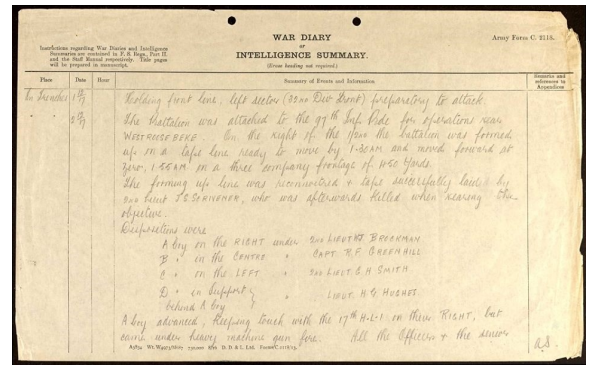 WAR DIARY
or
INTELLIGENCE SUMMARY.
(Erase heading not required.)
Army Form C. 2118.
Instructions regarding War Diaries and Intelligence
Summaries are contained in F. S. Regs., Part II.
and the Staff Manual respectively. Title pages
will be prepared in manuscript.
Place Date Hour Summary of Events and Information Remarks and
references to
Appendices
In Trenches Holding front line, left sector (32nd Div Front) preparatory to attack.
The Battalion was attached to the 97th Inf Bde for operations near
WESTROOSEBEKE. On the night of the the battalion was formed
up on a tape line ready to move by 1.30AM and moved forward at
Zero, 1.55AM on a three company frontage of 450 yards.
The forming up line was reconnoitred & tape successfully laid by
2nd Lieut SCRIVENER, who was afterwards killed when nearing the
objective.
Dispositions were
A Coy on the RIGHT under 2nd LIEUT BROCKMAN
B " in the CENTRE " CAPT. GREENHILL
C " on the LEFT " 2nd LIEUT. G.H SMITH
D " in Support " LIEUT. H.G HUGHES
behind A Coy
A Coy advanced, keeping touch with the 17th H.L.I on their RIGHT, but
came under heavy machine gun fire. All the Officers & the senior
D. D. & L., Ltd.